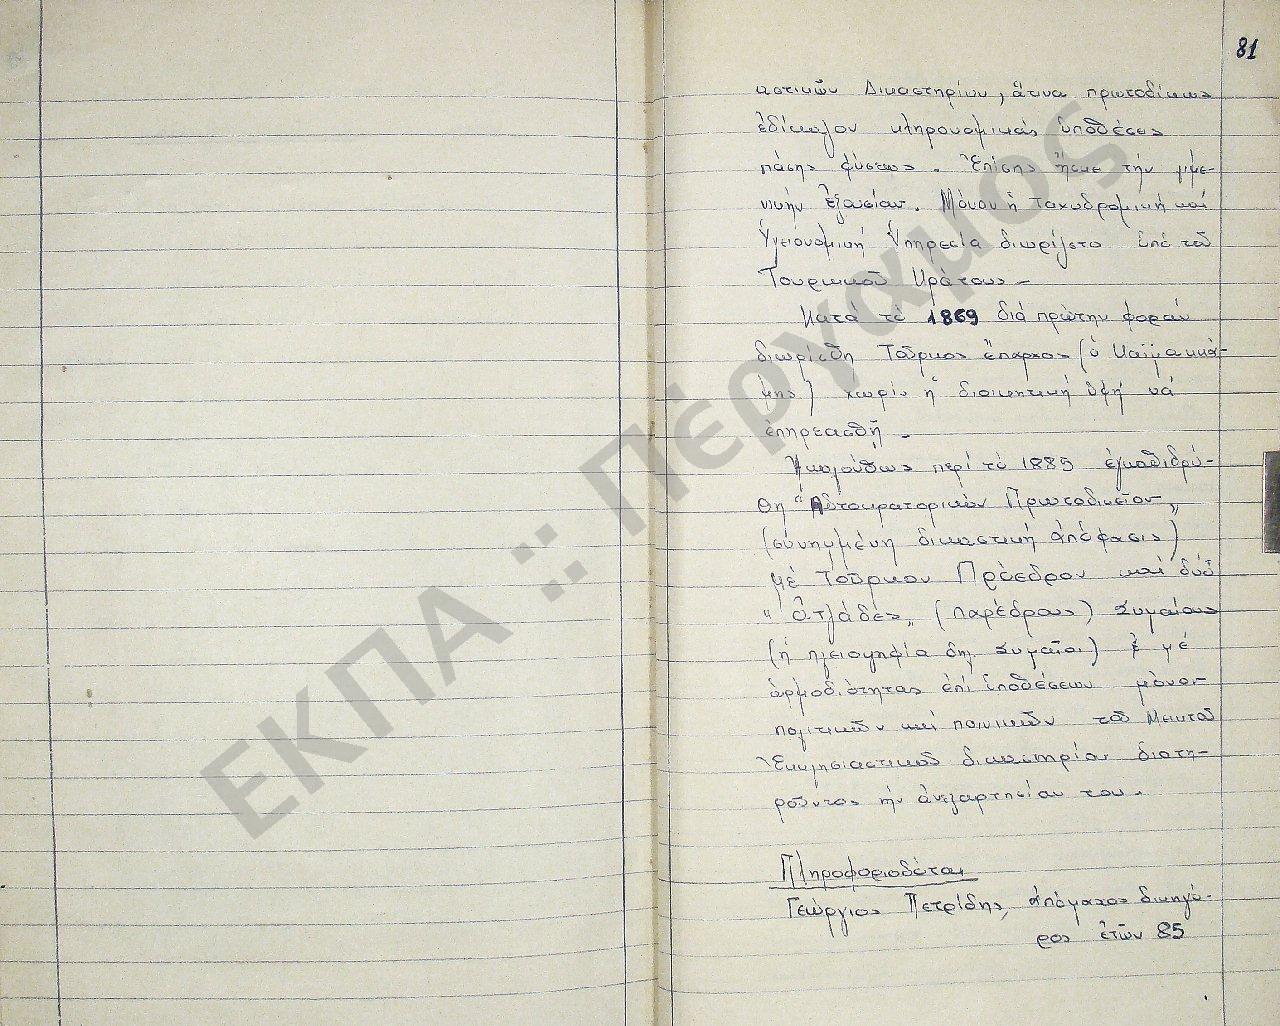 81
καστικῶν Δικαστηρίων, ἅτινα πρωτοδίκως
ἐδίκαζον κληρονομικάς ὑποθέσεις
πάσης φύσεως. Ἐπίσης ἤσκει τήν
ἐξουσίαν. Μόνον ἡ Ταχυδρομική καί
Ὑγειονομική Ὑπηρεσία διωρίζετο ὑπό τοῦ
Τουρκικοῦ Κράτους -
Κατά τό 1869 διά πρώτην φοράν
διωρίσθη Τοῦρκος ἔπαρχος (ὁ Καϊμακκά-
μης) χωρίς ἡ διοικητική ὑφή νά
ἐπηρεασθῇ -
Ἀκολούθως περί τό 1885 ἐγκαθιδρύ-
θη "Αὐτοκρατορικόν Πρωτοδικεῖον"
(συνημμένη δικαστική ἀπόφασις)
μέ Τοῦρκον Πρόεδρον καί δύο
"ἀζάδες" (παρέδρους) Συμαίους
(ἡ πλειοψηφία δηλ Συμαῖοι) & μέ
ἁρμοδιότητας ἐπί ὑποθέσεων μόνον
πολιτικῶν καί ποινικῶν τοῦ Μεικτοῦ
Ἐκκλησιαστικοῦ δικαστηρίου διατη-
ροῦντος τήν ἀνεξαρτησίαν του -
Πληροφοριοδόται
Γεώργιος Πετρίδης, ἀπόμαχος δικηγό-
ρος ἐτῶν 85
ΕΚΠΑ :: Πέργαμος